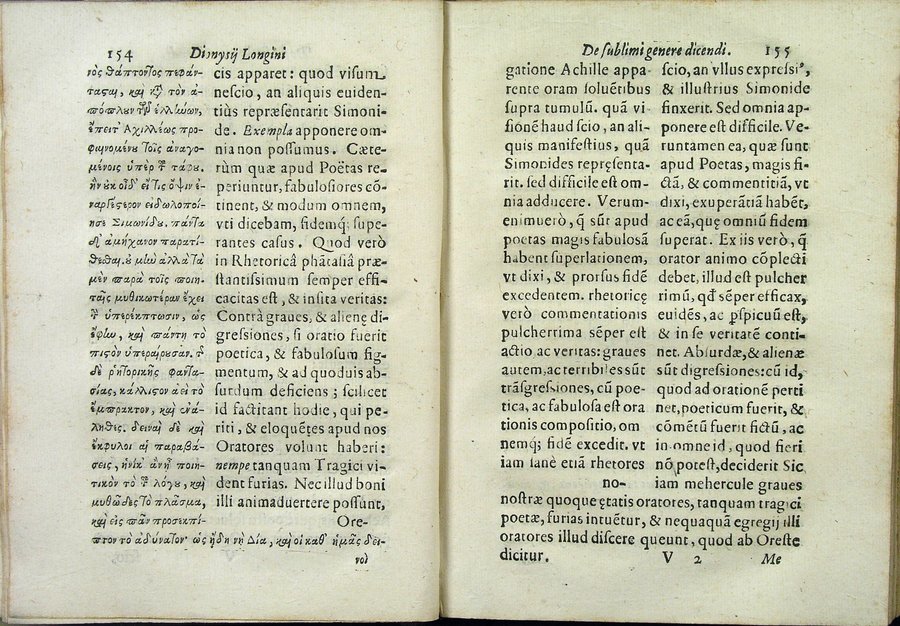 154 Dionysij Longini
νὸς θάπτοντος πεφάν-
τασαι, καὶ τὸν ἀ-
πόπλουν τῶν ἑλλήνων,
ἔπειτ' Ἀχιλλέως προ-
φαινομένου τοῖς ἀναγο-
μένοις ὑπὲρ τοῦ τάφου.
ἣν οὐκ οἶδ' εἴ τις ὄψιν ἐ-
ναργέστερον εἰδωλοποί-
ησε Σιμωνίδου. πάντα
δ' ἀμήχανον παρατί-
θεσθαι. οὐ μὴν ἀλλὰ τὰ
μὲν παρὰ τοῖς ποιη-
ταῖς μυθικωτέραν ἔχει
τὴν ὑπερέκπτωσιν, ὡς
ἔφην, καὶ πάντη τὸ
πιστὸν ὑπεραίρουσαν. τῆς
δὲ ῥητορικῆς φαντα-
σίας, κάλλιστον ἀεὶ τὸ
ἔμπρακτον, καὶ ἐνά-
ληθες. δειναὶ δὲ καὶ
ἔκφυλοι αἱ παραβά-
σεις, ἡνίκ' ἂν ᾖ ποιη-
τικὸν τὸ τοῦ λόγου, καὶ
μυθῶδες τὸ πλάσμα,
καὶ εἰς πᾶν προσεκπί-
πτον τὸ ἀδύνατον· ὡς ἤδη νὴ Δία, καὶ οἱ καθ' ἡμᾶς δει-
νοὶ
cis apparet: quod visum
nescio, an aliquis euiden-
tiùs repræsentarit Simoni-
de. Exempla apponere om-
nia non possumus. Cæte-
rùm quæ apud Poëtas re-
periuntur, fabulosiores cō-
tinent, & modum omnem,
vti dicebam, fidemq; supe-
rantes casus. Quod verò
in Rhetoricâ phātasiâ præ-
stantissimum semper effi-
cacitas est, & insita veritas:
Contrà graues, & alienę di-
gressiones, si oratio fuerit
poetica, & fabulosum fig-
mentum, & ad quoduis ab-
surdum deficiens; scilicet
id factitant hodie, qui pe-
riti, & eloquētes apud nos
Oratores volunt haberi:
nempe tanquam Tragici vi-
dent furias. Nec illud boni
illi animaduertere possunt,
Ore-
De sublimi genere dicendi. 155
gatione Achille appa-
rente oram soluētibus
supra tumulū. quā vi-
sionē haud scio, an ali-
quis manifestius, quā
Simonides repręsenta-
rit. sed difficile est om-
nia adducere. Verum-
enimuerò, q̄ sūt apud
poetas magis fabulosā
habent superlationem,
vt dixi, & prorsus fidē
excedentem. rhetoricę
verò commentationis
pulcherrima sēper est
actio ac veritas: graues
autem, ac terribiles sūt
trāsgressiones, cū poe-
tica, ac fabulosa est ora
tionis compositio, om
nemq; fidē excedit. vt
iam sanè etiā rhetores
no-
scio, an vllus expressi⁹,
& illustrius Simonide
finxerit. Sed omnia ap-
ponere est difficile. Ve-
runtamen ea, quæ sunt
apud Poetas, magis fi-
ctā, & commentitiā, vt
dixi, exuperātiā habēt,
ac eā, quę omniū fidem
superat. Ex iis verò, q̄
orator animo cōplecti
debet, illud est pulcher
rimū, qđ sēper efficax,
euidēs, ac ꝑspicuū est,
& in se veritatē conti-
net. Absurdæ, & alienæ
sūt digressiones: cū id,
quod ad orationē perti
net, poeticum fuerit, &
cōmētū fuerit fictū, ac
in omne id, quod fieri
nō potest, deciderit Sic
iam mehercule graues
nostræ quoque ętatis oratores, tanquam tragici
poetæ, furias intuētur, & nequaquā egregij illi
oratores illud discere queunt, quod ab Oreste
dicitur.
V 2 Me